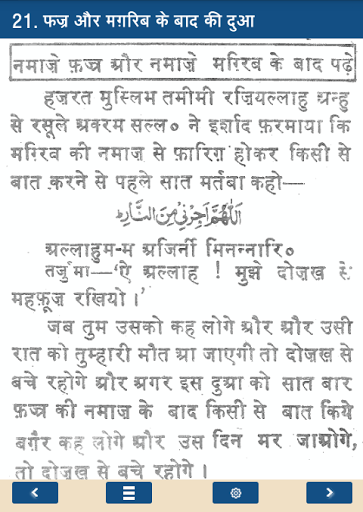 21. फज्र और मग़रिब के बाद की दुआ
नमाज़े फ़ज्र और नमाज़े मग़्रिब के बाद पढ़े
हज़रत मुस्लिम तमीमी रज़ियल्लाहु अन्हु
से रसूले अकरम सल्ल० ने इर्शाद फ़रमाया कि
मग़्रिब की नमाज़ से फ़ारिग़ होकर किसी से
बात करने से पहले सात मर्तबा कहो—
اَللّٰهُمَّ اَجِرْنِيْ مِنَ النَّارِ
अल्लाहुम-म अजिर्नी मिनन्नारि०
तर्जुमा—'ऐ अल्लाह ! मुझे दोज़ख से
महफ़ूज़ रखियो ।'
जब तुम उसको कह लोगे और और उसी
रात को तुम्हारी मौत आ जाएगी तो दोज़ख से
बचे रहोगे और अगर इस दुआ को सात बार
फ़ज्र की नमाज़ के बाद किसी से बात किये
बग़ैर कह लोगे और उस दिन मर जाओगे,
तो दोज़ख से बचे रहोगे ।